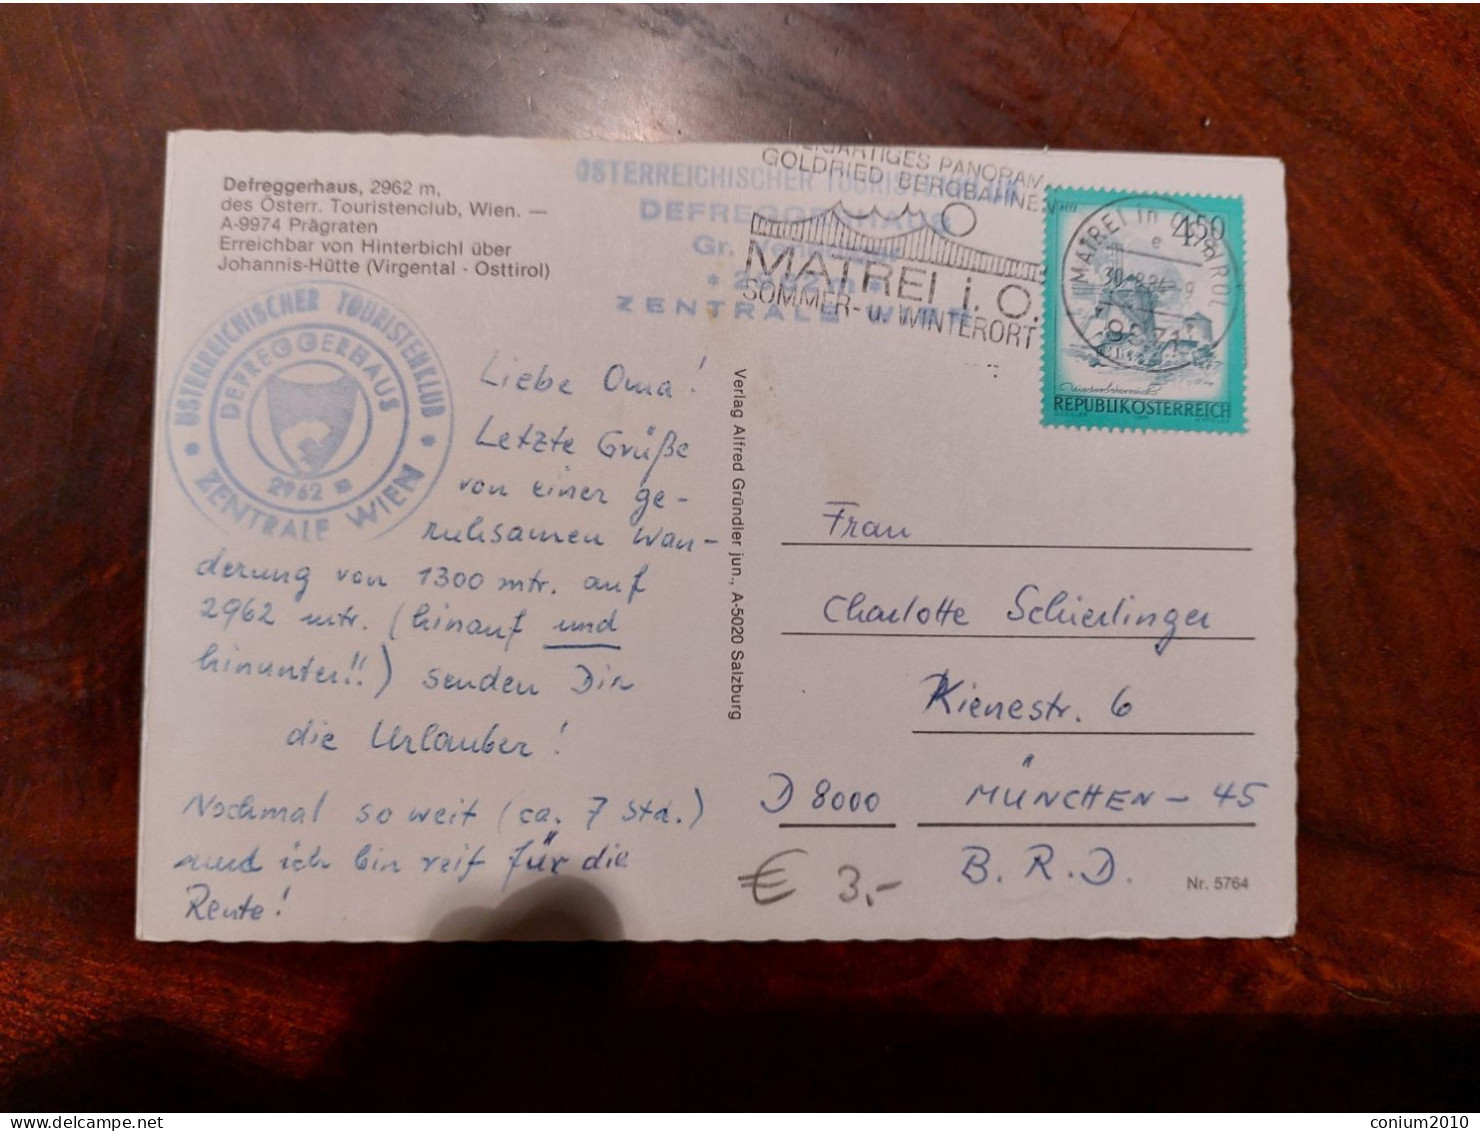 Defreggerhaus, 2962 m,
des Österr. Touristenclub, Wien. —
A-9974 Prägraten
Erreichbar von Hinterbichl über
Johannis-Hütte (Virgental - Osttirol)
ÖSTERREICHISCHER TOURISTENKLUB
DEFREGGERHAUS
2962 m
* ZENTRALE WIEN *
ÖSTERREICHISCHER
DEFREGGERHAUS
Gr.
ZENTRALE WIEN
PANORAMA
GOLDRIED BERGBAHNEN
MATREI i. O.
SOMMER- u. WINTERORT
MATREI in OSTTIROL
e
9971
450
Niederösterreich
REPUBLIK ÖSTERREICH
Liebe Oma!
Letzte Grüße
von einer ge-
ruhsamen Wan-
derung von 1300 mtr. auf
2962 mtr. (hinauf und
hinunter!!) senden Dir
die Urlauber!
Nochmal so weit (ca. 7 Std.)
und ich bin reif für die
Rente!
Verlag Alfred Gründler jun., A-5020 Salzburg
Frau
Charlotte Schierlinger
Kienestr. 6
D 8000 MÜNCHEN - 45
B.R.D.
€ 3,-
Nr. 5764
conium2010